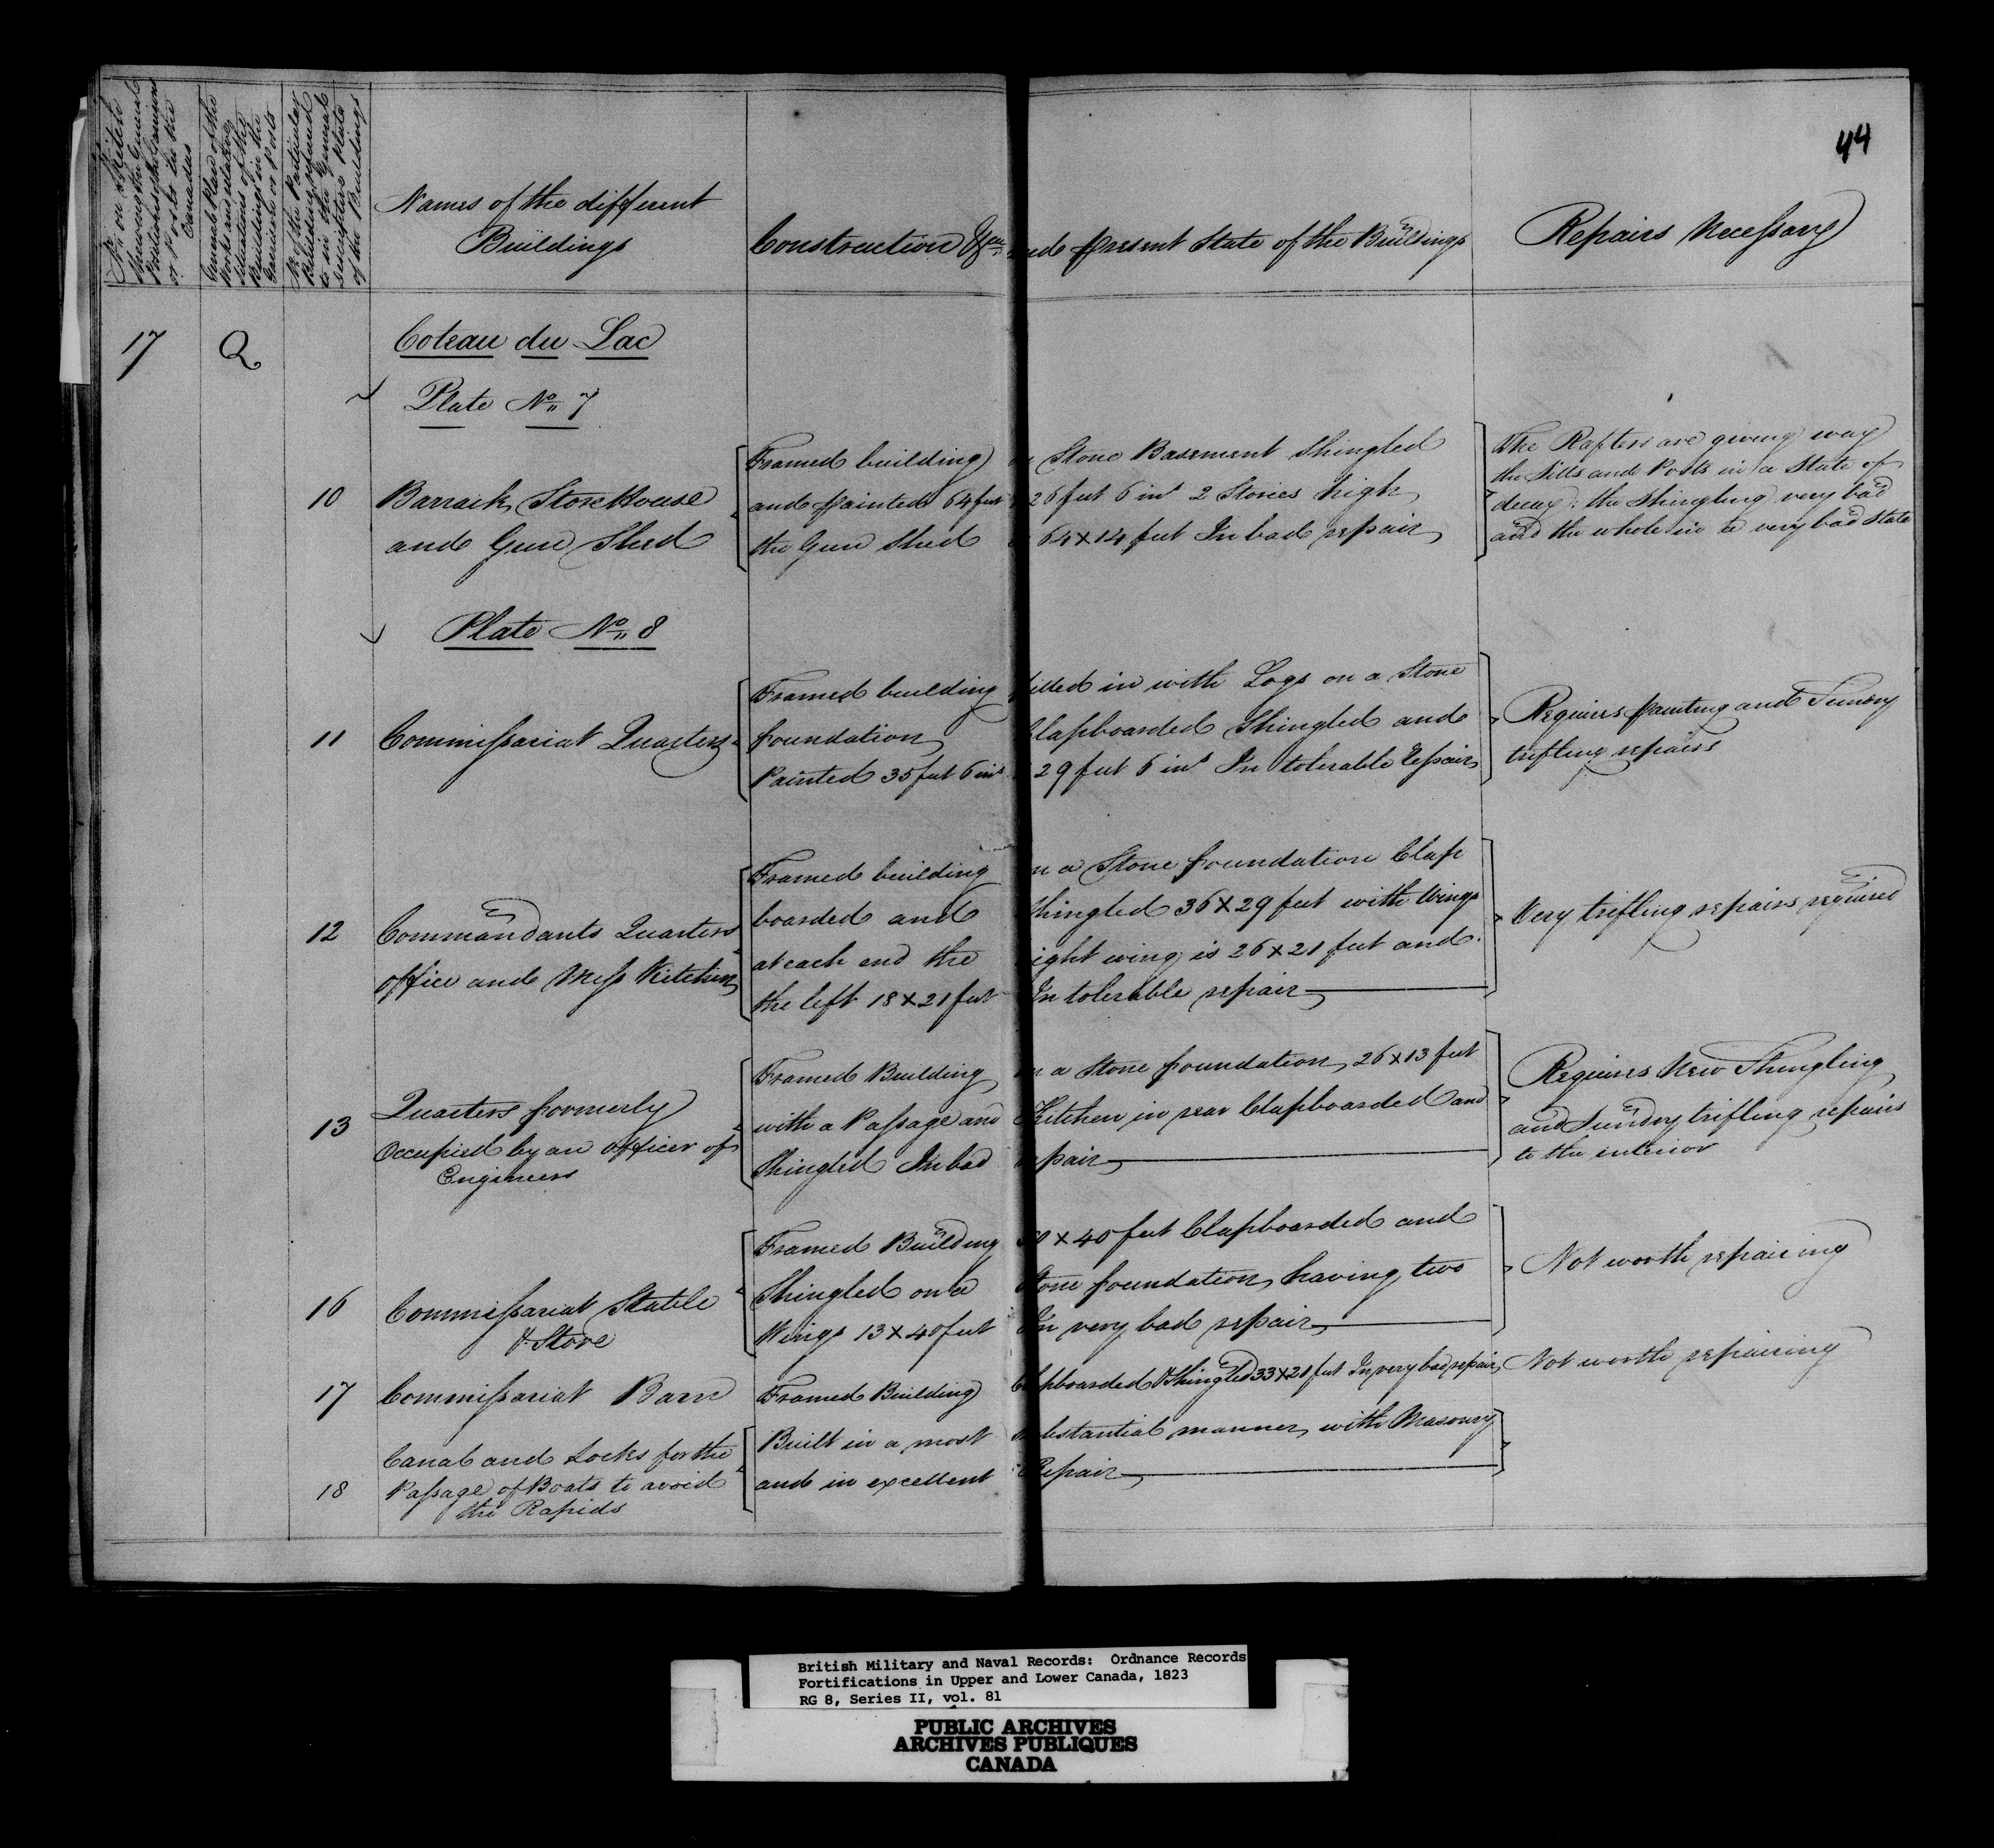 44
No. on Sketch
shewing the General
Positions of the Garrisons
or Posts in the
Canadas
General Plan of the
Works and relative
situations of the
Buildings in the
Garrison or Posts
No. of the Particular
Building referred
to in the General
descriptive Plate
of the Buildings
Names of the different
Buildings
Construction &ca and present State of the Buildings
Repairs Necessary
17 Q Coteau du Lac
Plate No. 7
10 Barrack Store House
and Gun Shed
Framed building Stone Basement Shingled
and painted 64 feet 26 feet 6 ins 2 Stories high
the Gun Shed 64 x 14 feet In bad repair
The Rafters are giving way
the Sills and Posts in a State of
decay; the Shingling very bad
and the whole in a very bad state
Plate No. 8
11 Commissariat Quarters
Framed building filled in with Logs on a Stone
foundation Clapboarded Shingled and
Painted 35 feet 6 ins 29 feet 6 ins In tolerable repair
Requires painting and Sundry
trifling repairs
12 Commandants Quarters
office and Mess Kitchen
Framed building on a Stone foundation Clap
boarded and Shingled 36 x 29 feet with Wings
at each end the right wing is 26 x 21 feet and
the left 18 x 21 feet In tolerable repair
Very trifling repairs required
13 Quarters formerly
Occupied by an officer of
Engineers
Framed Building on a Stone foundation 26 x 13 feet
with a Passage and Kitchen in rear Clapboarded and
Shingled In bad repair
Requires New Shingling
and Sundry trifling repairs
to the interior
16 Commissariat Stable
& Store
Framed Building x 40 feet Clapboarded and
Shingled on a Stone foundation having two
Wings 13 x 40 feet In very bad repair
Not worth repairing
17 Commissariat Barn
Framed Building Clapboarded & Shingled 33 x 21 feet In very bad repair
Not worth repairing
18 Canal and Locks for the
Passage of Boats to avoid
the Rapids
Built in a most substantial manner with Masonry
and in excellent Repair
British Military and Naval Records: Ordnance Records
Fortifications in Upper and Lower Canada, 1823
RG 8, Series II, vol. 81
PUBLIC ARCHIVES
ARCHIVES PUBLIQUES
CANADA